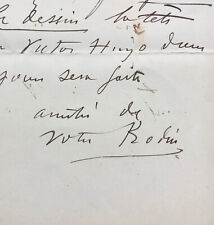 le dessin la tête
Victor Hugo dans
jours sera faite
amitié de
votre Rodin